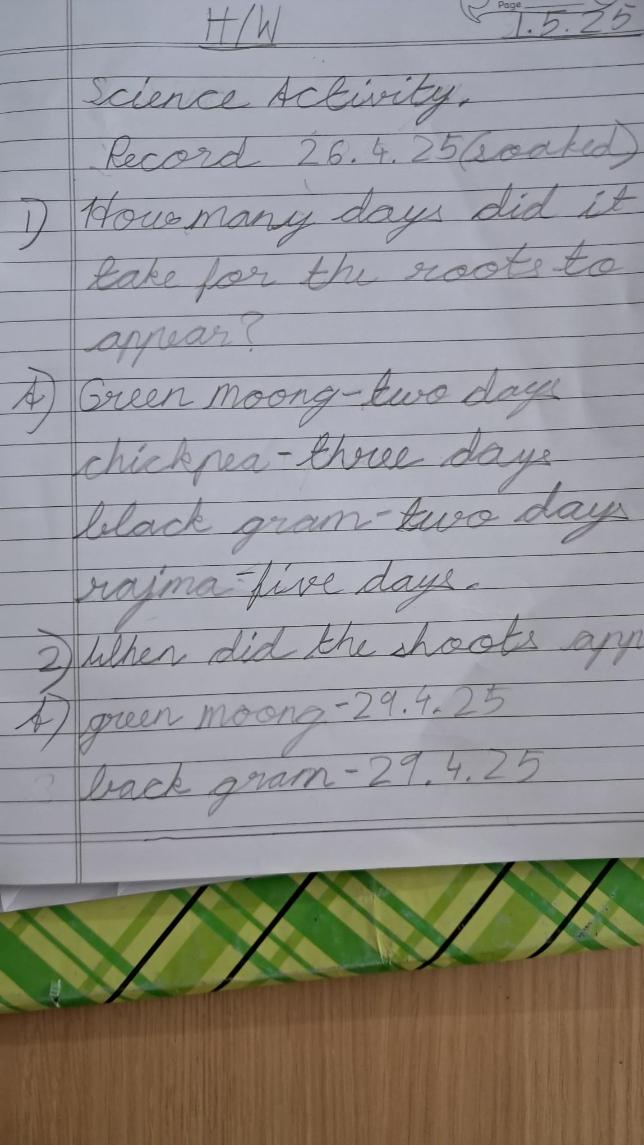 Page
H/W
1.5.25
Science Activity.
Record 26.4.25(soaked)
1) How many days did it
take for the roots to
appear?
A) Green moong-two days
chickpea-three days
black gram-two days
rajma-five days.
2) When did the shoots app
A) green moong-29.4.25
back gram-29.4.25